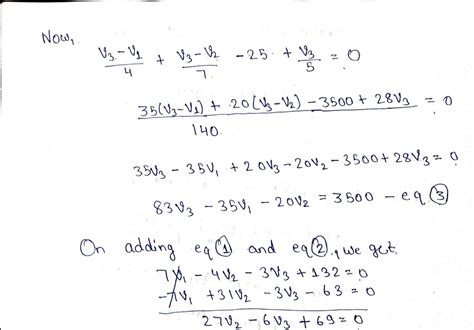 Now,
V₃-V₁/4 + V₃-V₂/7 - 25 + V₃/5 = 0
35(V₃-V₁) + 20(V₃-V₂) - 3500 + 28V₃/140 = 0
35V₃ - 35V₁ + 20V₃ - 20V₂ - 3500 + 28V₃ = 0
83V₃ - 35V₁ - 20V₂ = 3500 - eq ③
On adding eq ① and eq ②, we get.
7V₁ - 4V₂ - 3V₃ + 132 = 0
-7V₁ + 31V₂ - 3V₃ - 63 = 0
27V₂ - 6V₃ + 69 = 0